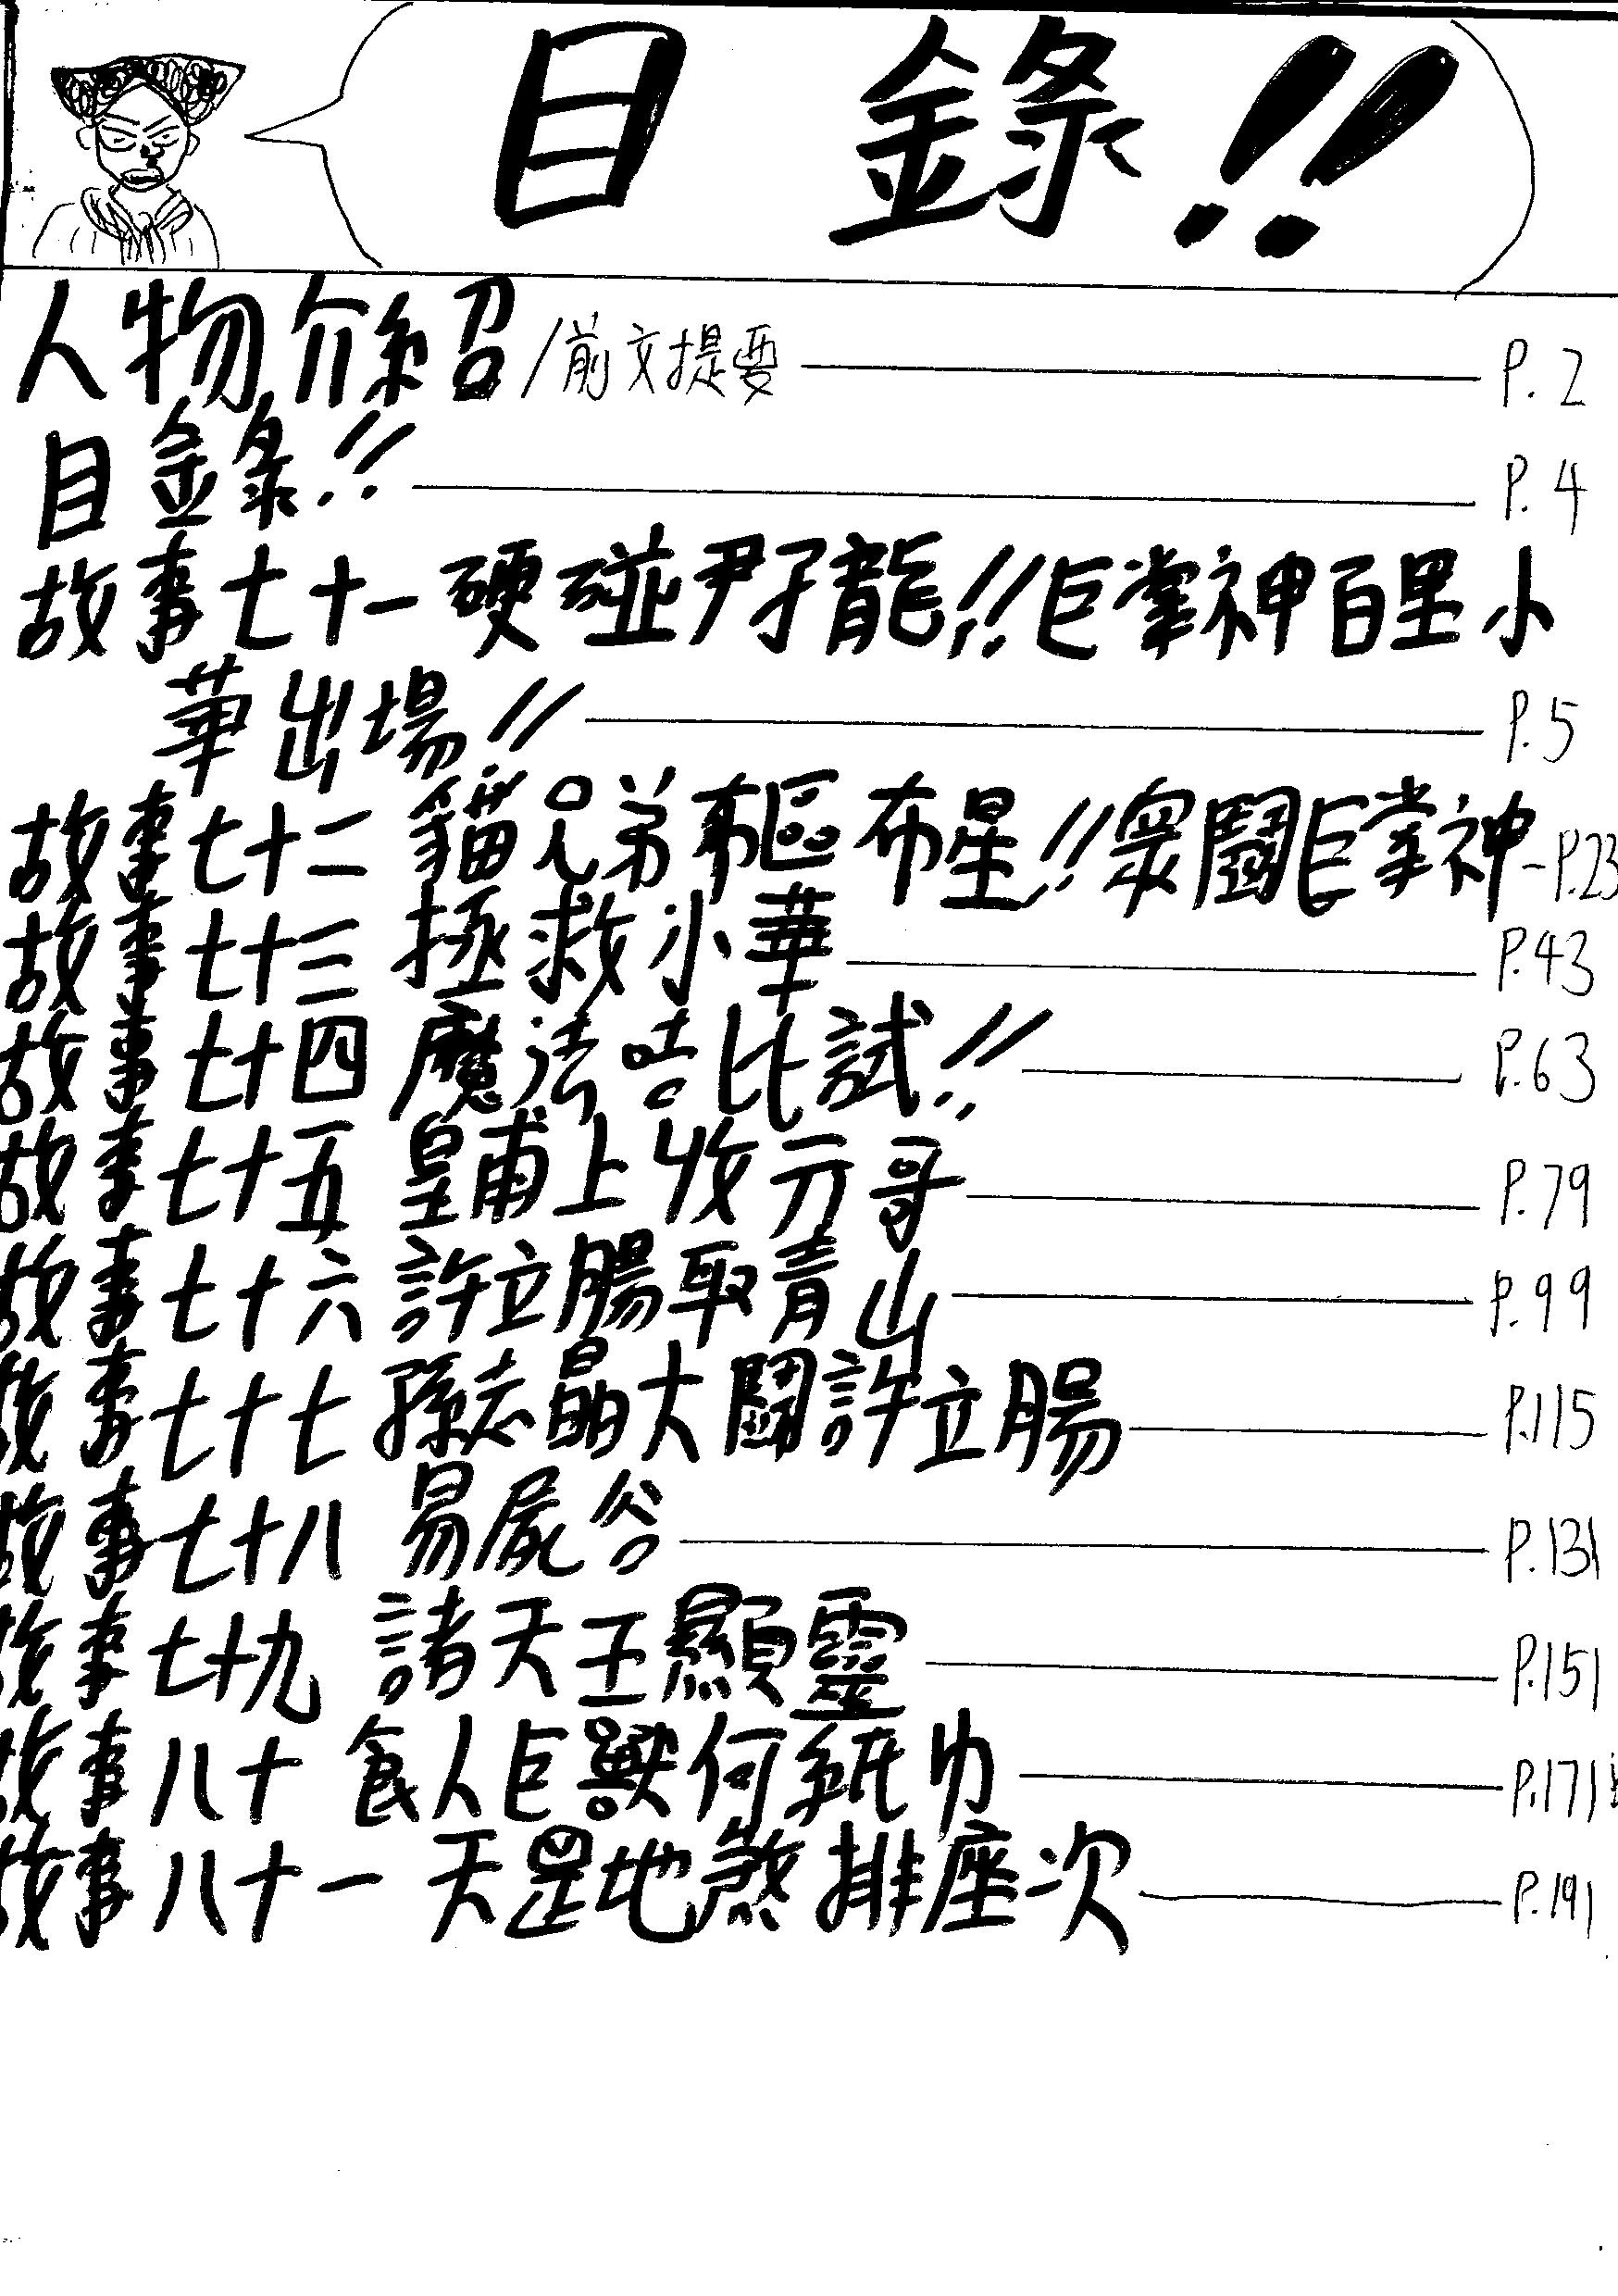 目 錄!!
人物介紹/前文提要 P.2
目錄!! P.4
故事七十一 硬碰尹孑龍!!巨掌神百里小
華出場!! P.5
故事七十二 貓兄弟軀布星!!眾鬪巨掌神 P.23
故事七十三 拯救小華 P.43
故事七十四 魔法咕比試!! P.63
故事七十五 皇甫上收元哥 P.79
故事七十六 許立腸取青山 P.99
故事七十七 孫志晶大鬪許立腸 P.115
故事七十八 易屍谷 P.131
故事七十九 諸天王顯靈 P.151
故事八十 食人巨獸何紙巾 P.171
故事八十一 天罡地煞排座次 P.191